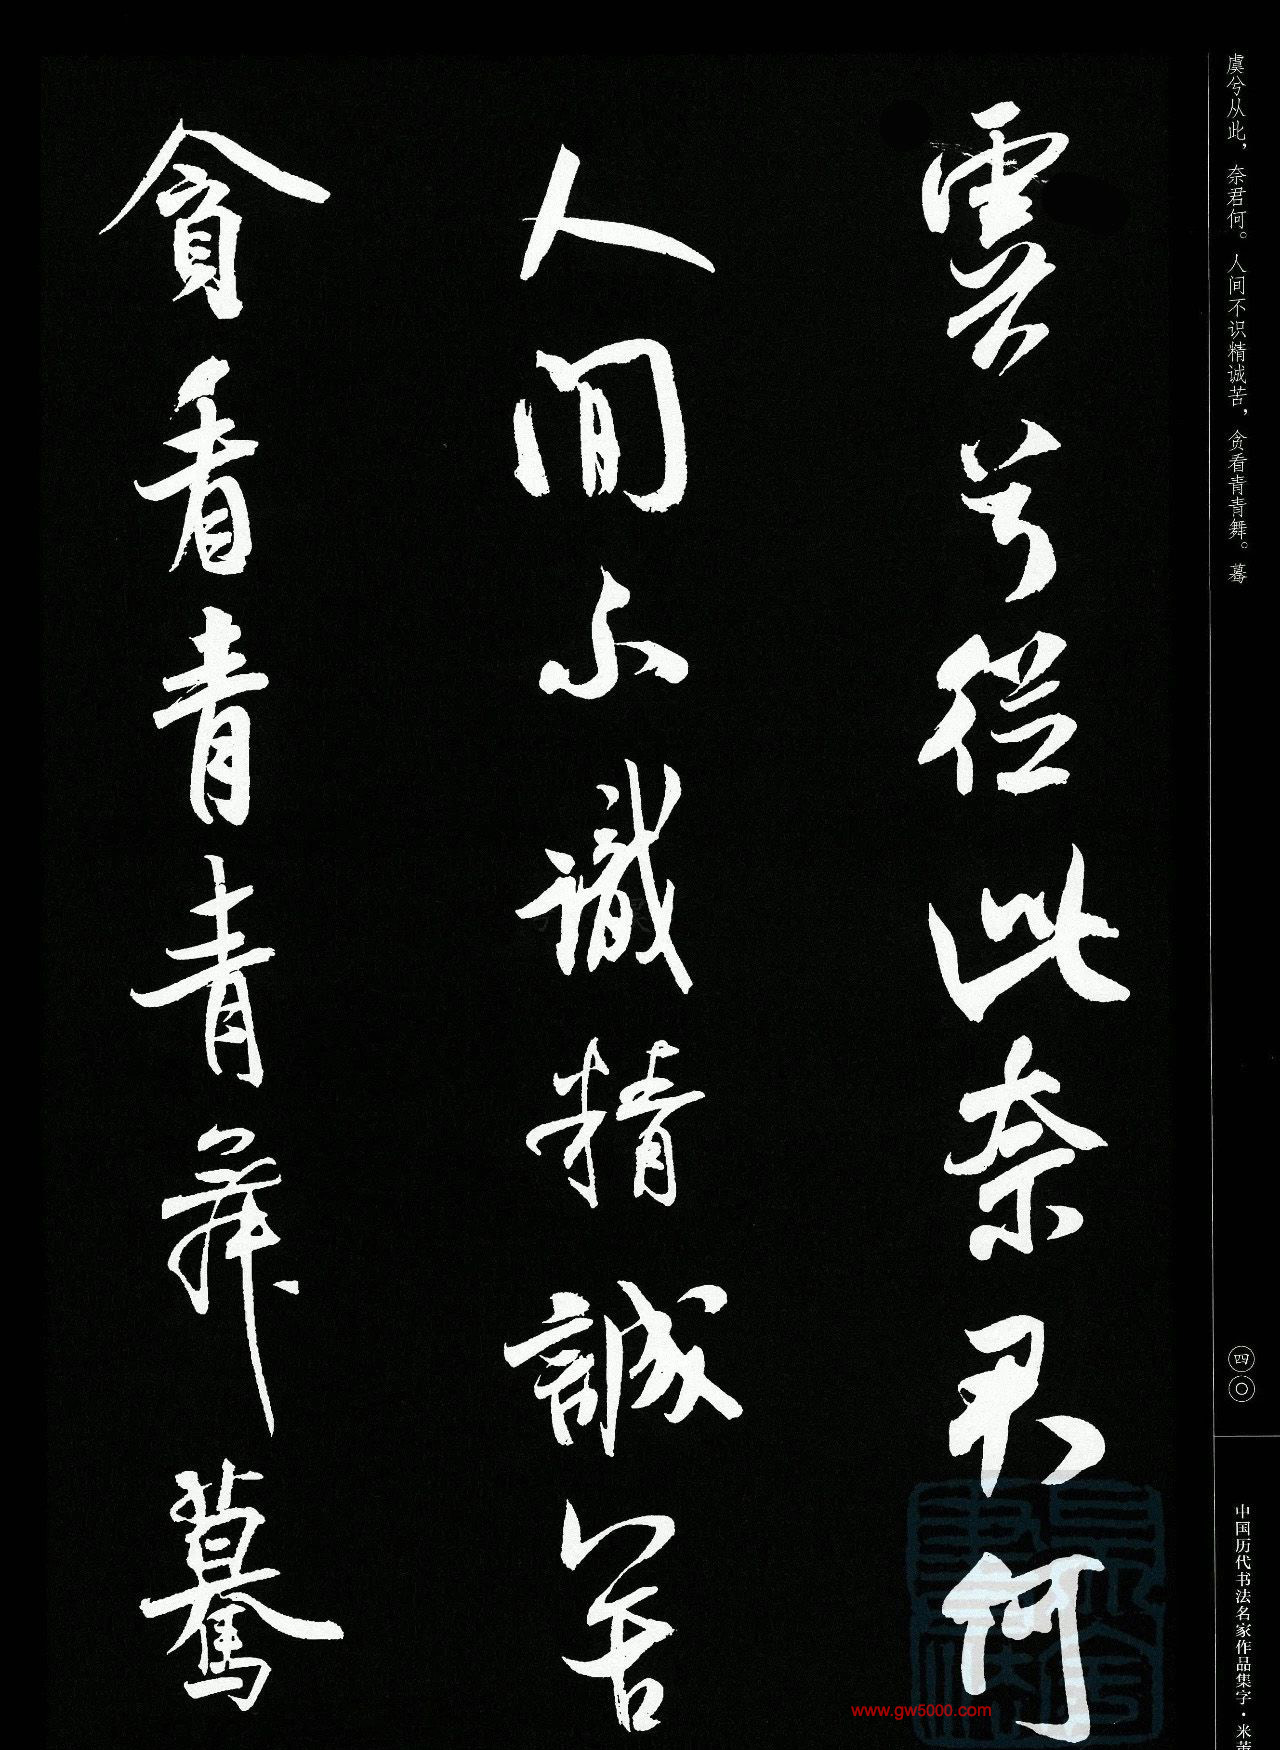 虞兮从此，奈君何。人间不识精诚苦，贪看青青舞。蓦
虞兮從此奈君何
人間不識精誠苦
貪看青青舞驀
四〇
中国历代书法名家作品集字·米芾
www.gw5000.com